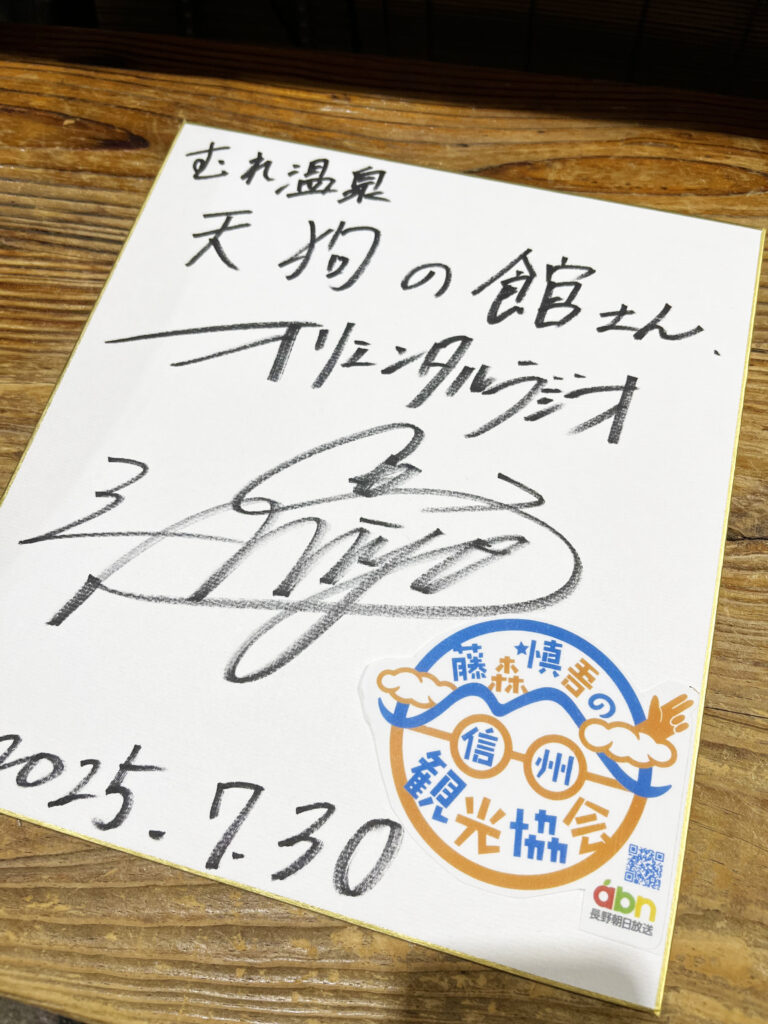 むれ温泉
天狗の館さん
オリエンタルラジオ
2025.7.30
藤森慎吾の
信州
観光協会
abn
長野朝日放送